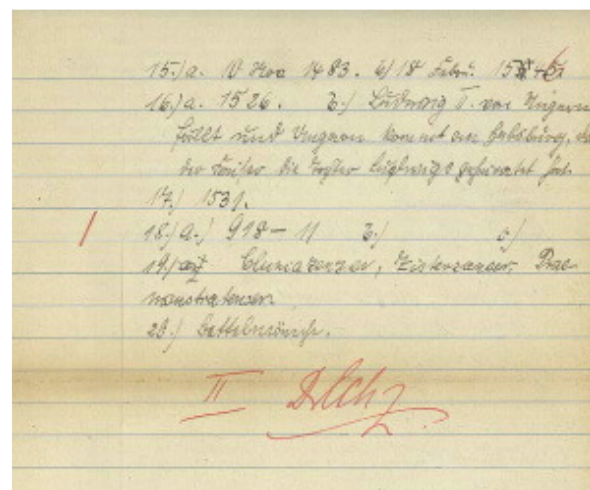 15.) a. 10 Nov 1483. b) 18 Febru. 15
16.) a. 1526. b.) Ludwig II. von Ungarn
fällt und Ungarn kommt an Habsburg, da
der Kaiser die Tochter Ludwigs geheiratet hat.
17.) 1531.
18.) a.) 918 – 11 b.) c.)
19.) Cluniazenser, Zisterzienser, Prae
monstratenser.
20.) Bettelmönche.
II